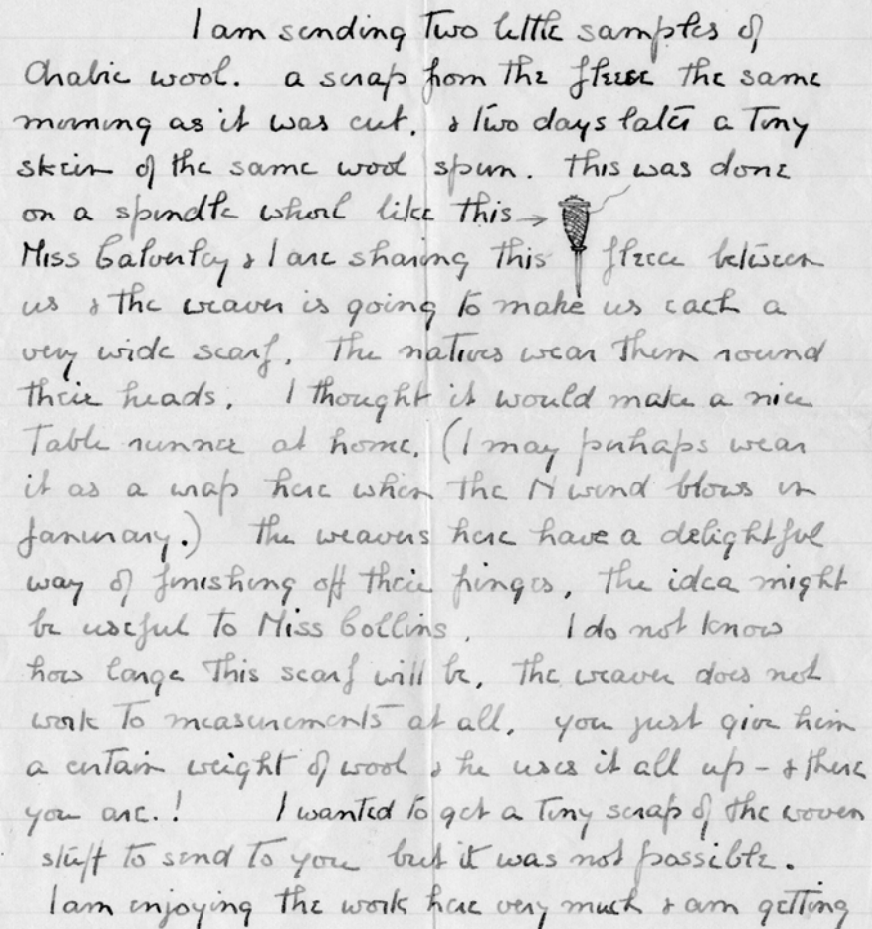 I am sending two little samples of
Arabic wool. a scrap from the fleece the same
morning as it was cut. & two days later a tiny
skein of the same wool spun. This was done
on a spindle whorl like this →
Miss Calverley & I are sharing this fleece between
us & the weaver is going to make us each a
very wide scarf. The natives wear them round
their heads. I thought it would make a nice
Table runner at home. (I may perhaps wear
it as a wrap here when the N wind blows in
January.) The weavers here have a delightful
way of finishing off their fringes. The idea might
be useful to Miss Collins. I do not know
how large this scarf will be. The weaver does not
work to measurements at all. you just give him
a certain weight of wool & he uses it all up - & there
you are.! I wanted to get a tiny scrap of the woven
stuff to send to you but it was not possible.
I am enjoying the work here very much & am getting